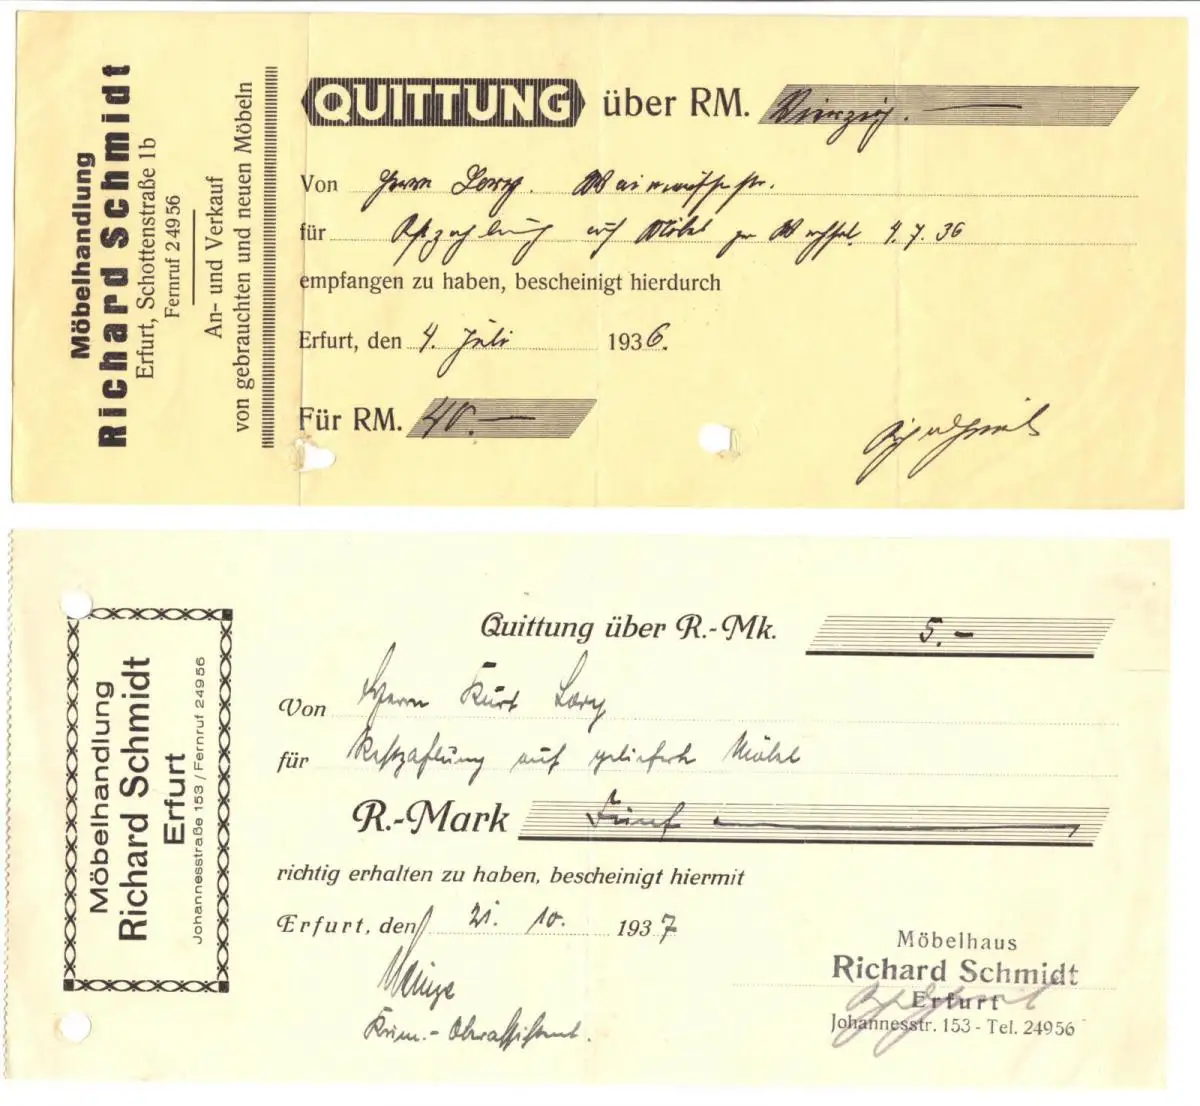 Möbelhandlung
Richard Schmidt
Erfurt, Schottenstraße 1b
Fernruf 24956
An- und Verkauf
von gebrauchten und neuen Möbeln
QUITTUNG über RM. Vierzig.
Von Herrn Lory.
für Abzahlung auf Möbel 4.7.36
empfangen zu haben, bescheinigt hierdurch
Erfurt, den 4. Juli 1936.
Für RM. 40.—
Möbelhandlung
Richard Schmidt
Erfurt
Johannesstraße 153 / Fernruf 24956
Quittung über R.-Mk. 5.-
Von Herrn Kurt Lory
für Restzahlung auf gelieferte Möbel
R.-Mark Fünf
richtig erhalten zu haben, bescheinigt hiermit
Erfurt, den 21. 10. 1937
Krim.-Oberassistent.
Möbelhaus
Richard Schmidt
Erfurt
Johannesstr. 153 - Tel. 24956